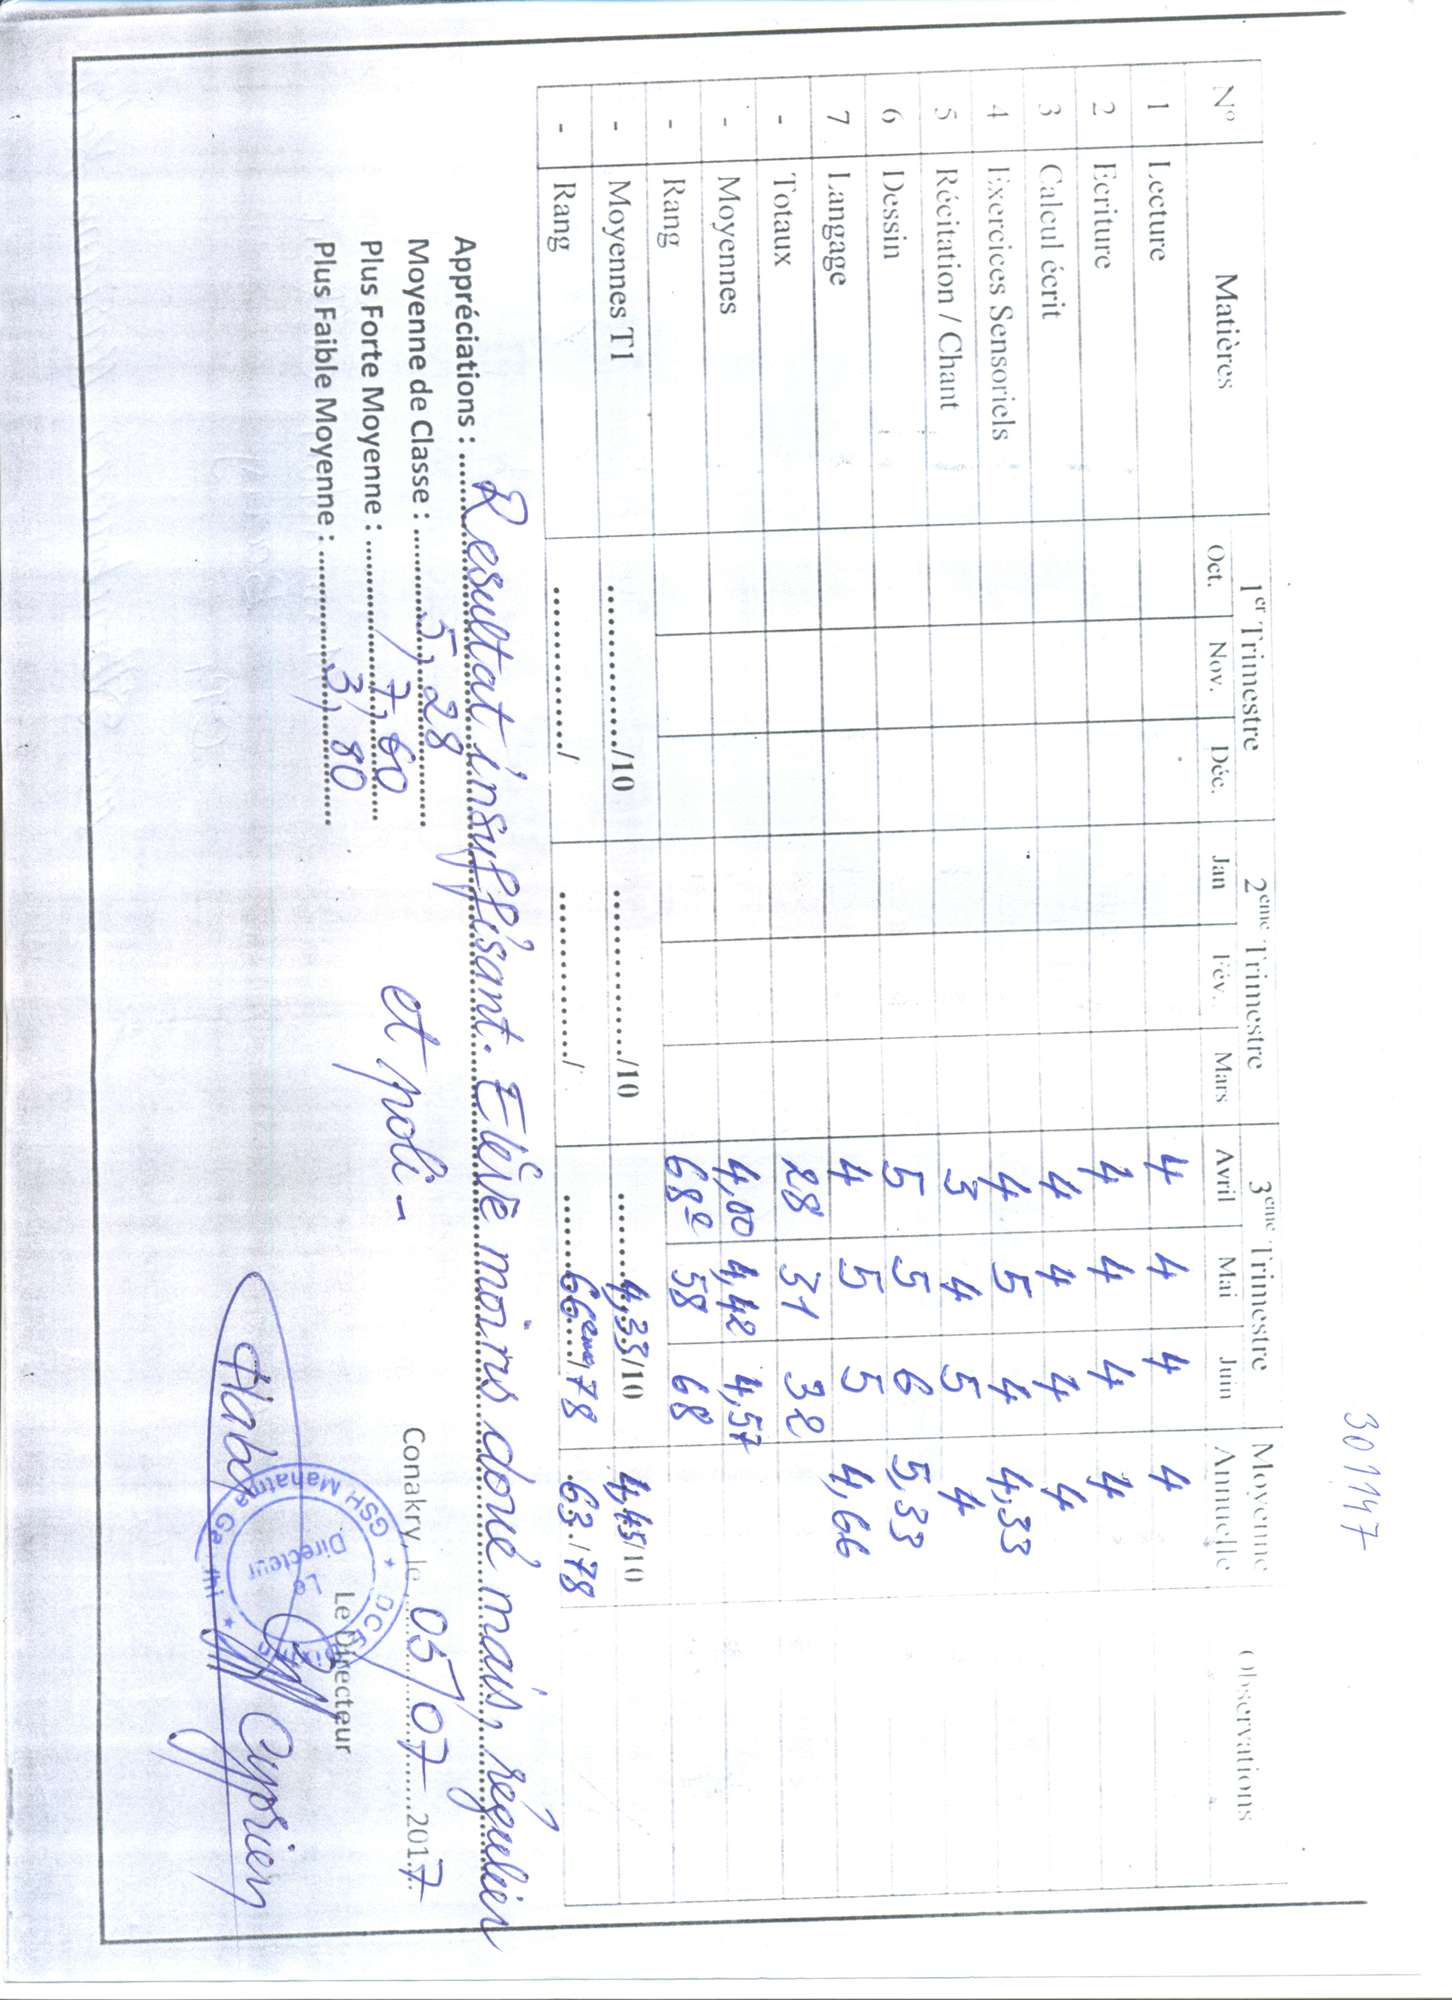 30147
N° Matières 1er Trimestre 2eme Trimestre 3eme Trimestre Moyenne Annuelle Observations
Oct. Nov. Déc. Jan Fév. Mars Avril Mai Juin
1 Lecture 4 4 4 4
2 Ecriture 4 4 4 4
3 Calcul écrit 4 4 4 4
4 Exercices Sensoriels 4 5 4 4,33
5 Récitation / Chant 3 4 5 4
6 Dessin 5 5 6 5,33
7 Langage 4 5 5 4,66
- Totaux 28 31 32
- Moyennes 4,00 4,42 4,57
- Rang 68e 58 68
- Moyennes T1 ............../10 ............../10 ........4,33/10 4,45/10
- Rang ............../ ............../ ........66eme/78 63./78
Appréciations : Resultat insuffisant. Elève moins doué mais, régulier
et poli-
Moyenne de Classe : 5,28
Plus Forte Moyenne : 7,60
Plus Faible Moyenne : 3,80
Conakry, le 05/07 2017
Le Directeur
GSH Manatma * DCE
Le Directeur
Cyprien